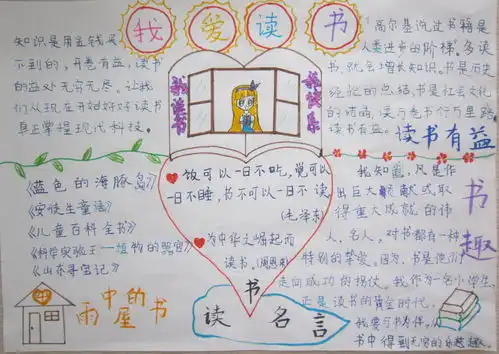 我爱读书
知识是用金钱买
不到的,开卷有益,读书
的益处无穷无尽。让我
们从现在开始好好读书
真正掌握现代科技。
我读书
我快乐
高尔基说过书籍是
人类进步的阶梯。多读
书,就会增长知识。书是历史
经验的总结,书是社会文化
的结晶,读万卷书行万里路
读书有益。
读书有益
《蓝色的海豚岛》
《安徒生童话》
《儿童百科全书》
《科学实验王—植物的器官》
《山东寻宝记》
雨中的书屋
饭可以一日不吃,觉可以
一日不睡,书不可以一日不读
(毛泽东)
为中华之崛起而
读书。(周恩来)
读书名言
我知道,凡是作
出巨大贡献或取
得重大成就的伟
人、名人,对书都有一种
特别的挚爱。因为,书是他们
走向成功的拐杖。我作为一名小学生
正是读书的黄金时代。
我要与书为伴,从
书中得到无穷的乐趣。
书趣